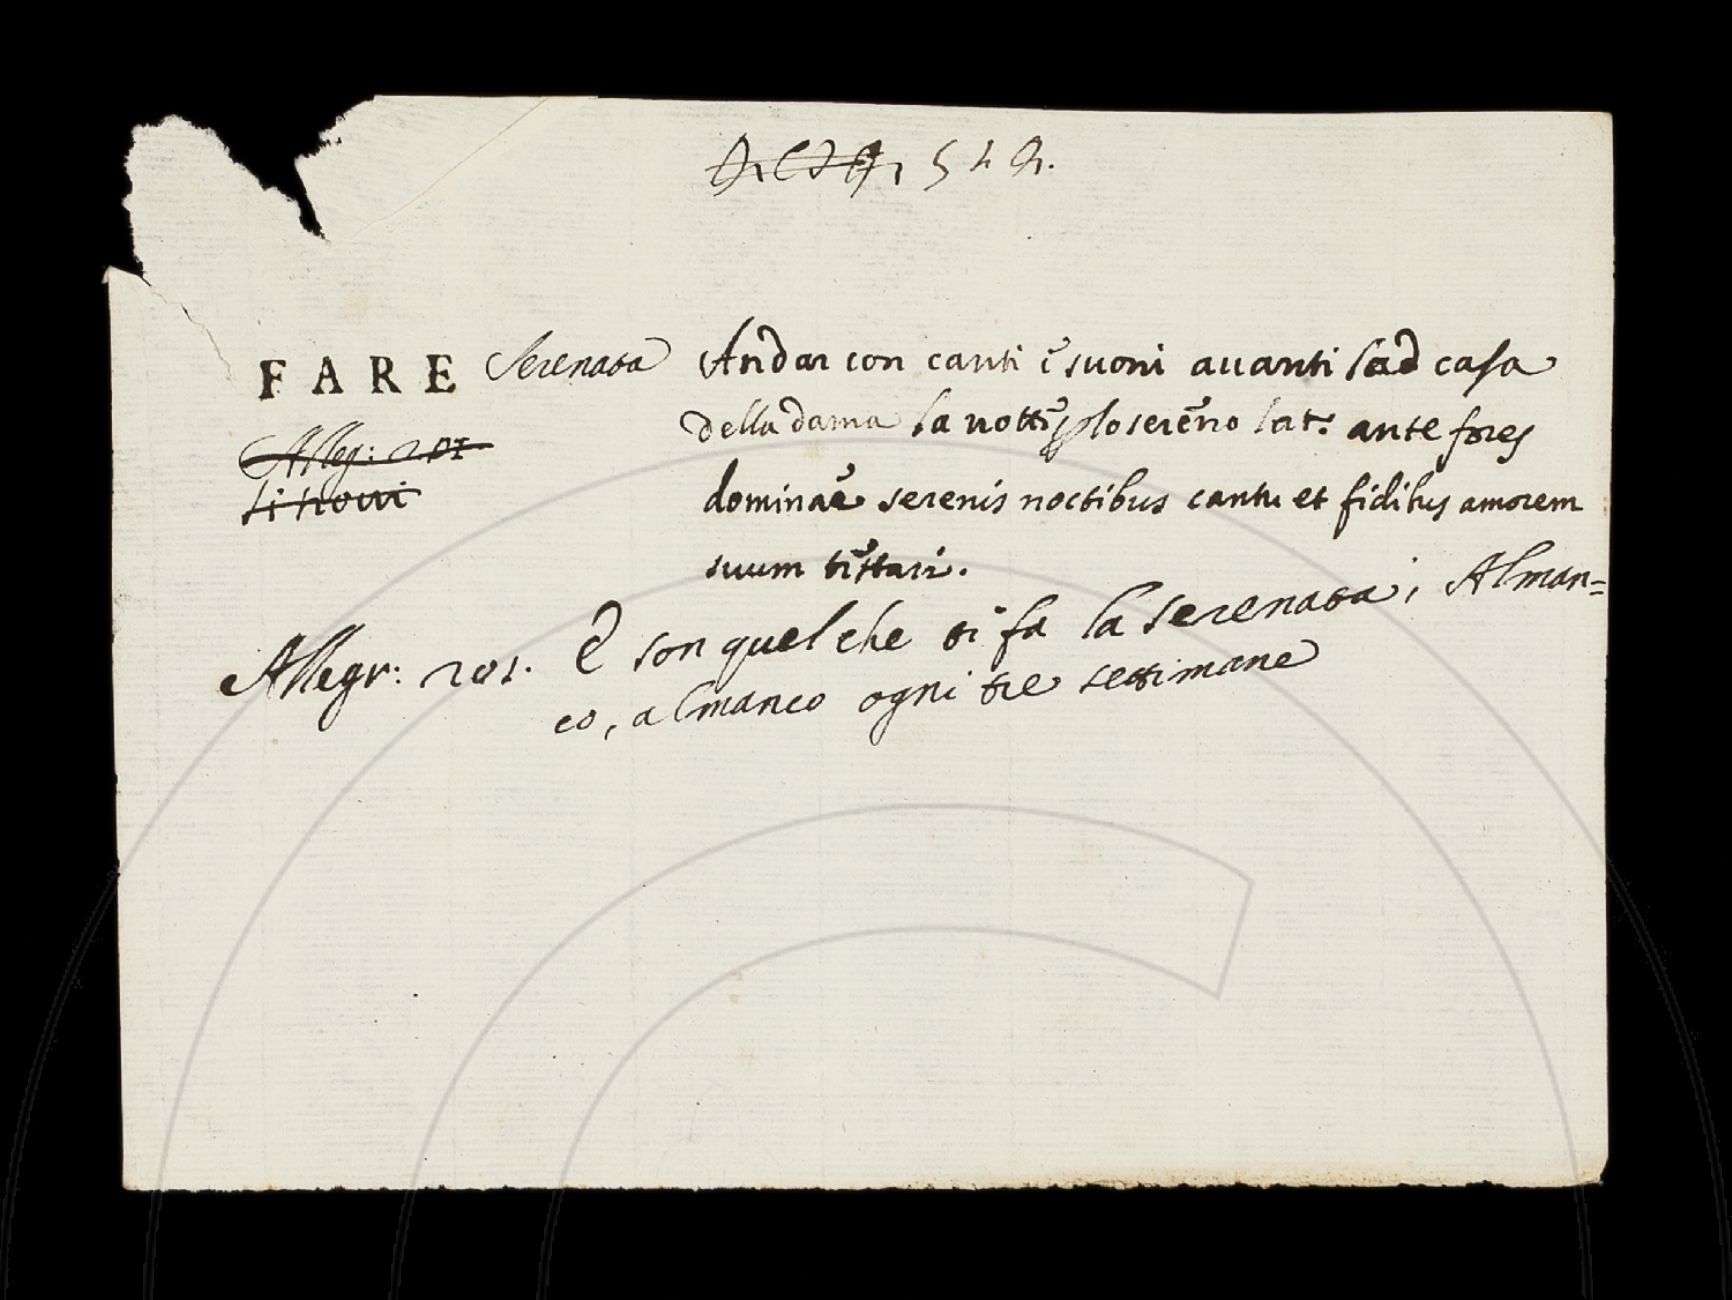 FARE Serenata Andar con canti e suoni avanti la casa
della dama la notte p lo sereno lat. ante fores
dominae serenis noctibus cantu et fidibus amorem
suum testari.
Alleg: 201
si trovi
Allegr: 201. E son quel che ti fa la serenata, Alman=
co, almanco ogni tre settimane